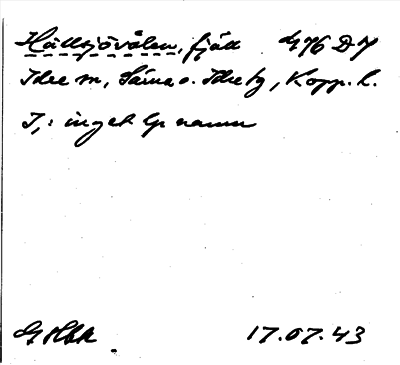 Hällsjövålen, fjäll G76 D7
Idre sn, Särna o. Idre tg, Kopp. l.
I,: inget lp namn
17.07.43